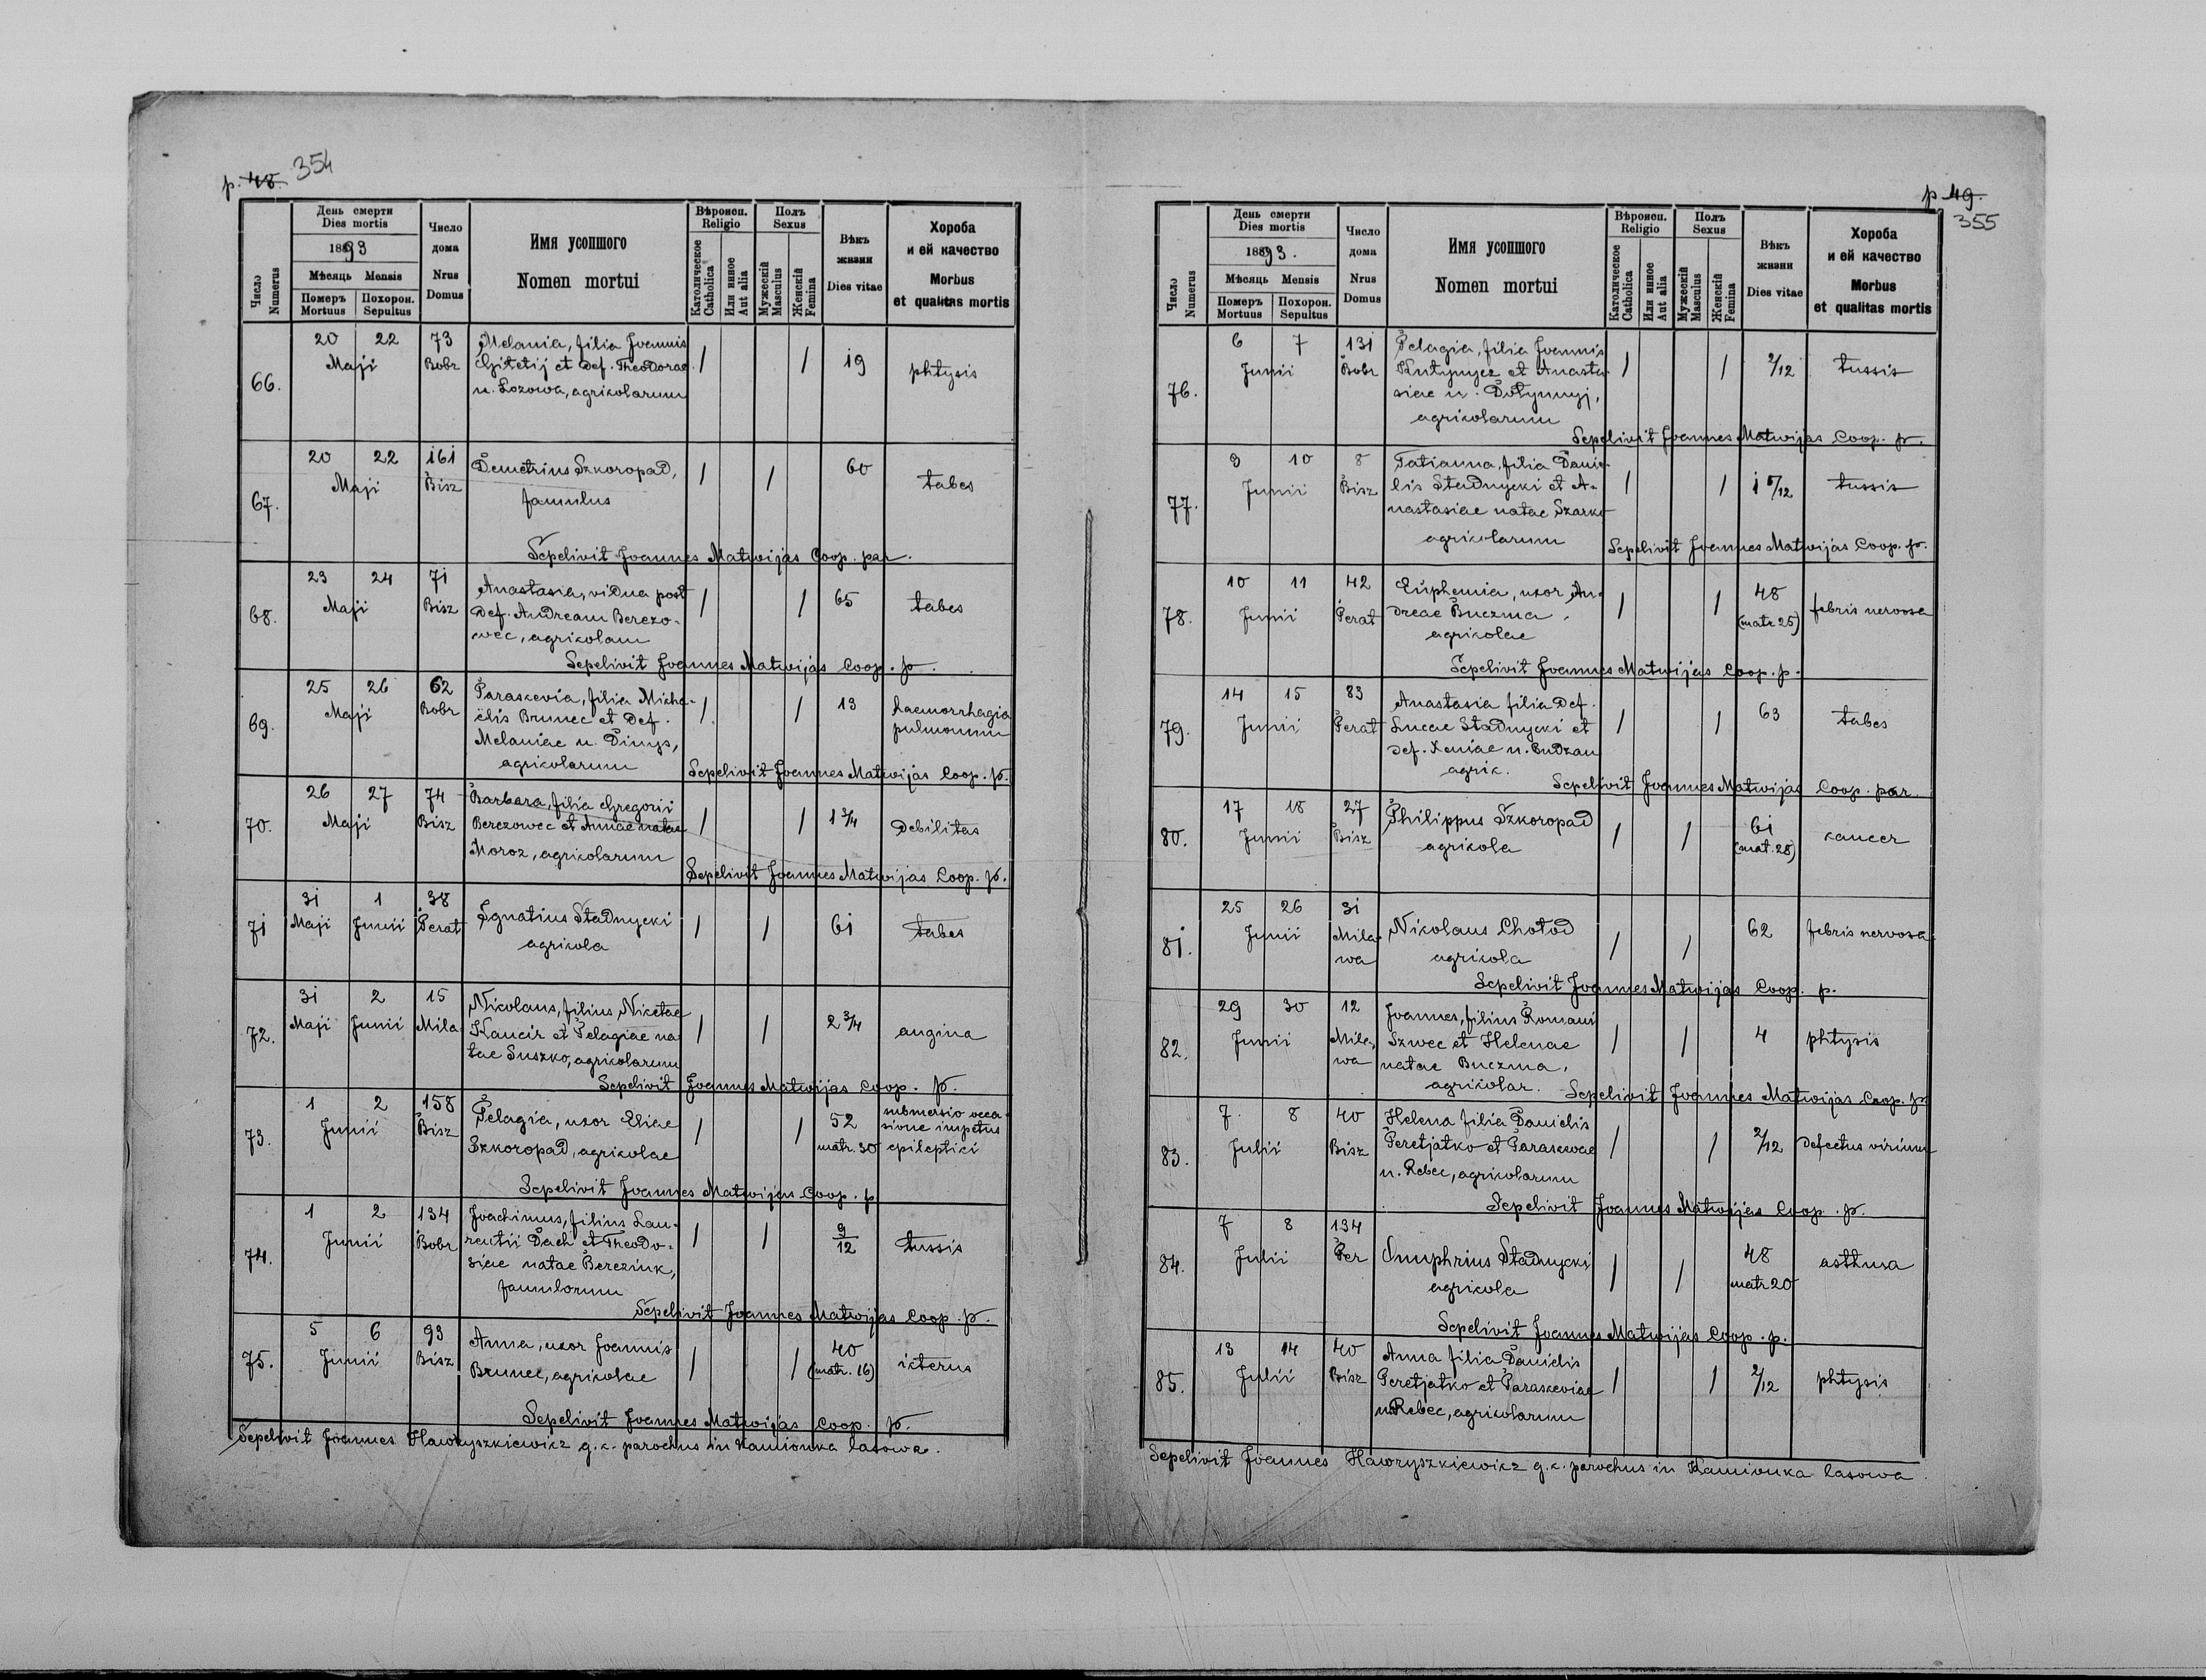 p. 48. 354
День смерти
Dies mortis
1893
Мѣсяць Mensis
Померъ Похорон.
Mortuus Sepultus
Число
Numerus
Число
дома
Nrus
Domus
Имя усопшого
Nomen mortui
Вѣроисп.
Religio
Католическое
Catholica
Или инное
Aut alia
Полъ
Sexus
Мужескій
Masculus
Женскій
Femina
Вѣкъ
жизни
Dies vitae
Хороба
и ей качество
Morbus
et qualitas mortis
66. 20 22 Maji 73 Bobr
Melania, filia Joannis
et def. Theodorae
n. Lozowa, agricolarum
/ / 19 phtysis
67. 20 22 Maji 161 Bisz
Demetrius Szkoropad,
famulus
/ / 60 tabes
Sepelivit Joannes Matwijas Coop. par.
68. 23 24 Maji 71 Bisz
Anastasia, vidua post
def. Andream Berezo-
wec, agricolam
/ / 65 tabes
Sepelivit Joannes Matwijas Coop. p.
69. 25 26 Maji 62 Bobr
Paraskevia, filia Micha-
ëlis Brunec et def.
Melaniae n. Dinys,
agricolarum
/ / 13 haemorrhagia
pulmonum
Sepelivit Joannes Matwijas Coop. p.
70. 26 27 Maji 74 Bisz
Barbara, filia Gregorii
Berezowec et Annae natae
Moroz, agricolarum
/ / 1 3/4 debilitas
Sepelivit Joannes Matwijas Coop. p.
71 31 Maji 1 Junii 38 Perat
Ignatius Stadnycki
agricola
/ / 61 tabes
72. 31 Maji 2 Junii 15 Mila
Nicolaus, filius Nicetae
Kancir et Pelagiae na
tae Suszko, agricolarum
/ / 2 3/4 angina
Sepelivit Joannes Matwijas Coop. p.
73. 1 2 Junii 158 Bisz
Pelagia, uxor Eliae
Szkoropad, agricolae
/ / 52
matr. 30
submersio occa-
sione impetus
epileptici
Sepelivit Joannes Matwijas Coop. p
74. 1 2 Junii 134 Bobr
Joachimus, filius Lau-
rentii Dach et Theodo-
siae natae Bereziuk,
famulorum
/ / 9/12 tussis
Sepelivit Joannes Matwijas Coop. p.
75. 5 6 Junii 93 Bisz
Anna, uxor Joannis
Brunec, agricolae
/ / 40
(matr. 16)
icterus
Sepelivit Joannes Matwijas Coop. p.
Sepelivit Joannes Hawryszkiewicz g. c. parochus in Kamionka lasowa.
p 49.
355
День смерти
Dies mortis
1893.
Мѣсяць Mensis
Померъ Похорон.
Mortuus Sepultus
Число
Numerus
Число
дома
Nrus
Domus
Имя усопшого
Nomen mortui
Вѣроисп.
Religio
Католическое
Catholica
Или инное
Aut alia
Полъ
Sexus
Мужескій
Masculus
Женскій
Femina
Вѣкъ
жизни
Dies vitae
Хороба
и ей качество
Morbus
et qualitas mortis
76. 6 7 Junii 131 Bobr
Pelagia, filia Joannis
et Anasta-
siae n.
agricolarum
/ / 2/12 tussis
Sepelivit Joannes Matwijas Coop. p.
77. 9 10 Junii 8 Bisz
Tatianna, filia Danie-
lis Stadnycki et A-
nastasiae natae Szarko
agricolarum
/ / tussis
Sepelivit Joannes Matwijas Coop. p.
78. 10 11 Junii 42 Perat
Euphemia, uxor An-
dreae Buczma,
agricolae
/ / 48
(matr 25)
febris nervosa
Sepelivit Joannes Matwijas Coop. p.
79. 14 15 Junii 83 Perat
Anastasia filia def.
Lucae Stadnycki et
def. Xeniae n. Budzan
agric.
/ / 63 tabes
Sepelivit Joannes Matwijas Coop. par.
80. 17 18 Junii 27 Bisz
Philippus Szkoropad
agricola
/ / 61
(mat. 28)
cancer
81. 25 26 Junii 31 Mila-
wa
Nicolaus Chołod
agricola
/ / 62 febris nervosa
Sepelivit Joannes Matwijas Coop. p.
82. 29 30 Junii 12 Mila-
wa
Joannes, filius Romani
Szwec et Helenae
natae Buczma,
agricolar.
/ / 4 phtysis
Sepelivit Joannes Matwijas Coop. p.
83. 7 8 Julii 40 Bisz
Helena filia Danielis
Peretjatko et Parascevae
n. Rebec, agricolarum
/ / 2/12 defectus virium
Sepelivit Joannes Matwijas Coop. p.
84. 7 8 Julii 134 Per
Onuphrius Stadnycki
agricola
/ / 48
matr 20
asthma
Sepelivit Joannes Matwijas Coop. p.
85. 13 14 Julii 40 Bisz
Anna filia Danielis
Peretjatko et Paraskeviae
n Rebec, agricolarum
/ / 2/12 phtysis
Sepelivit Joannes Hawryszkiewicz g. c. parochus in Kamionka lasowa.